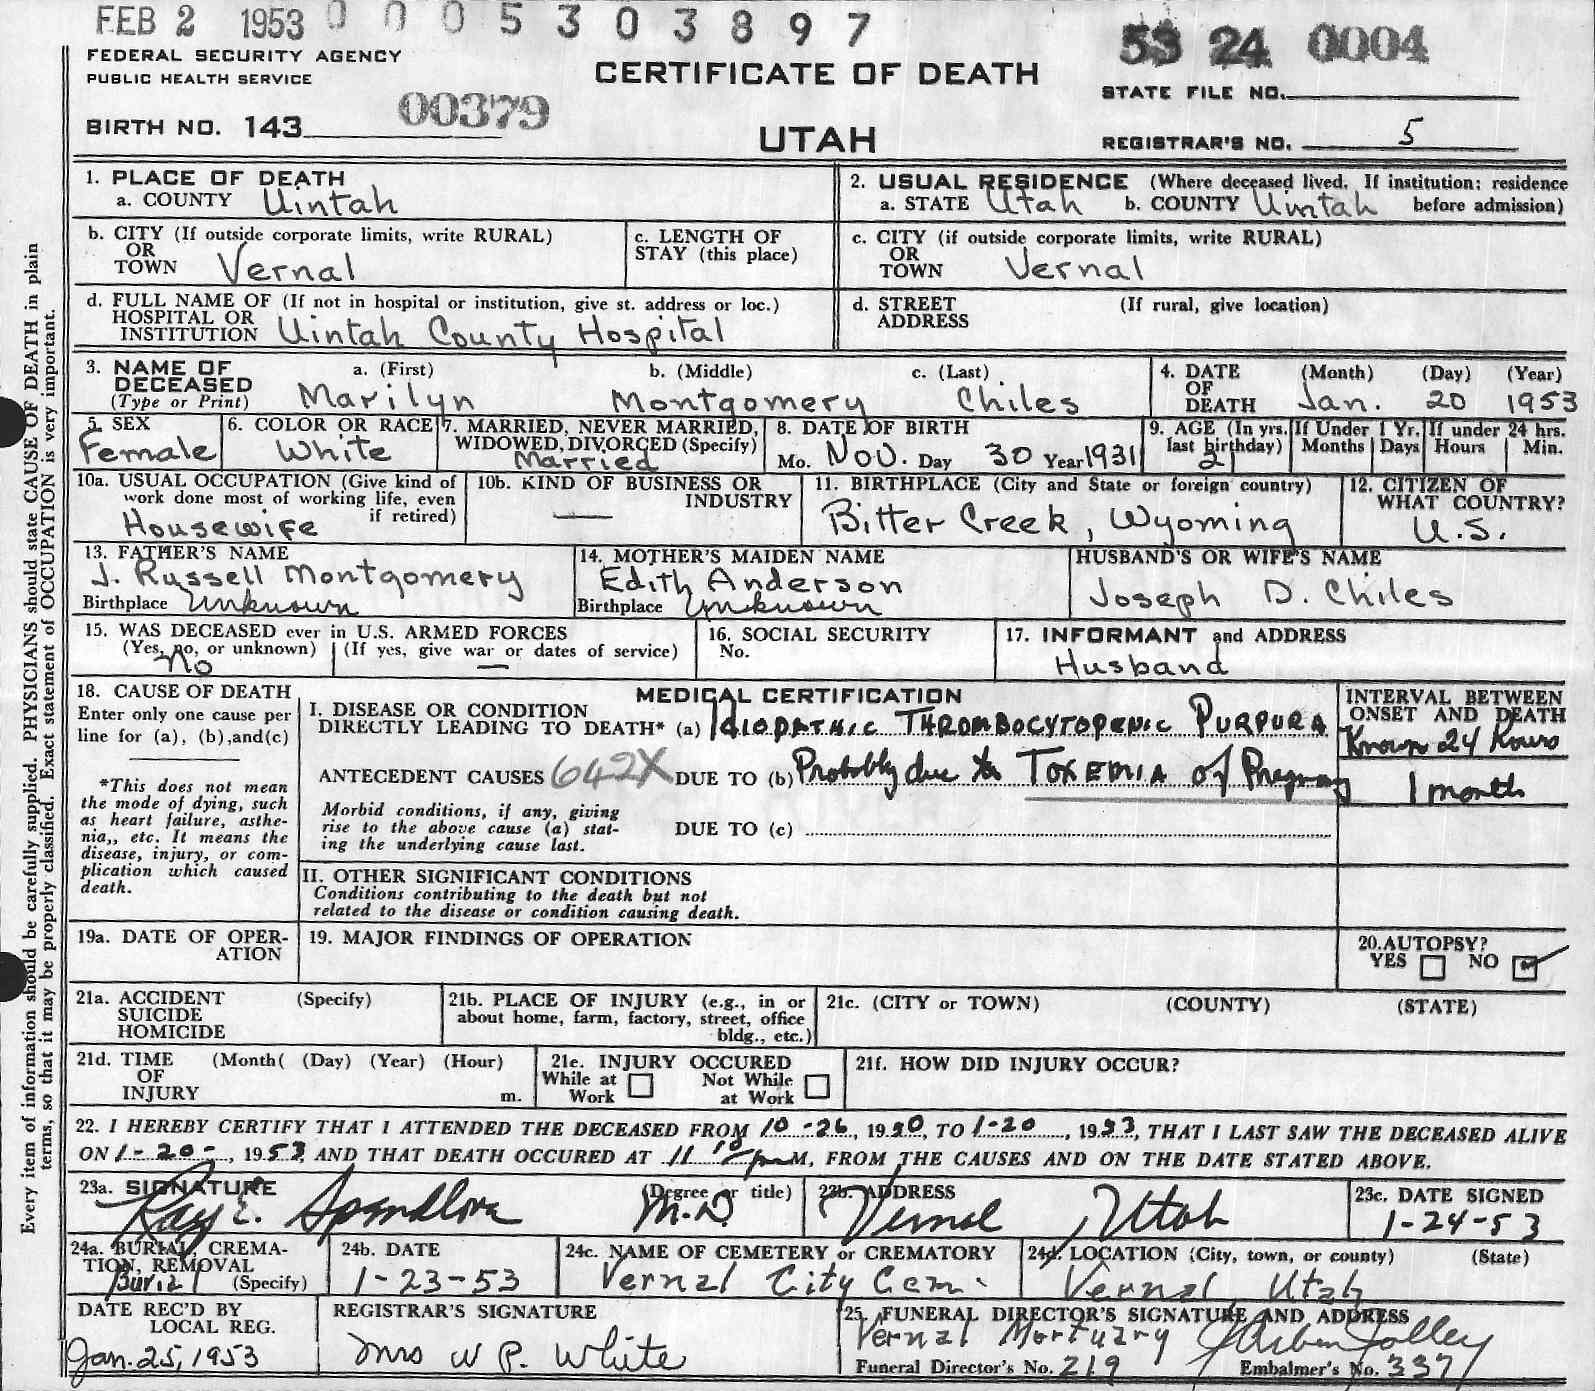 FEB 2 1953 0 0 0 5 3 0 3 8 9 7
53 24 0004
FEDERAL SECURITY AGENCY
PUBLIC HEALTH SERVICE
CERTIFICATE OF DEATH
STATE FILE NO.
00379
BIRTH NO. 143
UTAH
REGISTRAR'S NO. 5
Every item of information should be carefully supplied. PHYSICIANS should state CAUSE OF DEATH in plain
terms, so that it may be properly classified. Exact statement of OCCUPATION is very important.
1. PLACE OF DEATH
a. COUNTY Uintah
2. USUAL RESIDENCE (Where deceased lived. If institution: residence
a. STATE Utah b. COUNTY Uintah before admission)
b. CITY (If outside corporate limits, write RURAL)
OR
TOWN Vernal
c. LENGTH OF
STAY (this place)
c. CITY (if outside corporate limits, write RURAL)
OR
TOWN Vernal
d. FULL NAME OF (If not in hospital or institution, give st. address or loc.)
HOSPITAL OR
INSTITUTION Uintah County Hospital
d. STREET (If rural, give location)
ADDRESS
3. NAME OF a. (First) b. (Middle) c. (Last)
DECEASED
(Type or Print) Marilyn Montgomery Chiles
4. DATE (Month) (Day) (Year)
OF
DEATH Jan. 20 1953
5. SEX
Female
6. COLOR OR RACE
White
7. MARRIED, NEVER MARRIED,
WIDOWED, DIVORCED (Specify)
Married
8. DATE OF BIRTH
Mo. Nov. Day 30 Year 1931
9. AGE (In yrs.
last birthday)
21
If Under 1 Yr.
Months Days
If under 24 hrs.
Hours Min.
10a. USUAL OCCUPATION (Give kind of
work done most of working life, even
if retired)
Housewife
10b. KIND OF BUSINESS OR
INDUSTRY
—
11. BIRTHPLACE (City and State or foreign country)
Bitter Creek, Wyoming
12. CITIZEN OF
WHAT COUNTRY?
U.S.
13. FATHER'S NAME
J. Russell Montgomery
Birthplace Unknown
14. MOTHER'S MAIDEN NAME
Edith Anderson
Birthplace Unknown
HUSBAND'S OR WIFE'S NAME
Joseph D. Chiles
15. WAS DECEASED ever in U.S. ARMED FORCES
(Yes, no, or unknown) (If yes, give war or dates of service)
No —
16. SOCIAL SECURITY
No.
17. INFORMANT and ADDRESS
Husband
18. CAUSE OF DEATH
Enter only one cause per
line for (a), (b), and(c)
*This does not mean
the mode of dying, such
as heart failure, asthe-
nia,, etc. It means the
disease, injury, or com-
plication which caused
death.
MEDICAL CERTIFICATION
I. DISEASE OR CONDITION
DIRECTLY LEADING TO DEATH* (a) Idiopathic Thrombocytopenic Purpura
ANTECEDENT CAUSES 642X DUE TO (b) Probably due to Toxemia of Pregnancy
Morbid conditions, if any, giving
rise to the above cause (a) stat-
ing the underlying cause last.
DUE TO (c)
INTERVAL BETWEEN
ONSET AND DEATH
Known 24 hours
1 month
II. OTHER SIGNIFICANT CONDITIONS
Conditions contributing to the death but not
related to the disease or condition causing death.
19a. DATE OF OPER-
ATION
19. MAJOR FINDINGS OF OPERATION
20. AUTOPSY?
YES NO
21a. ACCIDENT (Specify)
SUICIDE
HOMICIDE
21b. PLACE OF INJURY (e.g., in or
about home, farm, factory, street, office
bldg., etc.)
21c. (CITY or TOWN) (COUNTY) (STATE)
21d. TIME (Month( (Day) (Year) (Hour)
OF
INJURY m.
21e. INJURY OCCURED
While at Not While
Work at Work
21f. HOW DID INJURY OCCUR?
22. I HEREBY CERTIFY THAT I ATTENDED THE DECEASED FROM 10-26, 1950, TO 1-20, 1953, THAT I LAST SAW THE DECEASED ALIVE
ON 1-20-, 1953, AND THAT DEATH OCCURED AT 11 10 p M, FROM THE CAUSES AND ON THE DATE STATED ABOVE.
23a. SIGNATURE (Degree or title)
Ray E. Spendlove M.D.
23b. ADDRESS
Vernal, Utah
23c. DATE SIGNED
1-24-53
24a. BURIAL, CREMA-
TION, REMOVAL
Burial (Specify)
24b. DATE
1-23-53
24c. NAME OF CEMETERY or CREMATORY
Vernal City Cem.
24d. LOCATION (City, town, or county) (State)
Vernal Utah
DATE REC'D BY
LOCAL REG.
Jan. 25, 1953
REGISTRAR'S SIGNATURE
Mrs W P. White
25. FUNERAL DIRECTOR'S SIGNATURE AND ADDRESS
Vernal Mortuary
Funeral Director's No. 219 Embalmer's No. 337